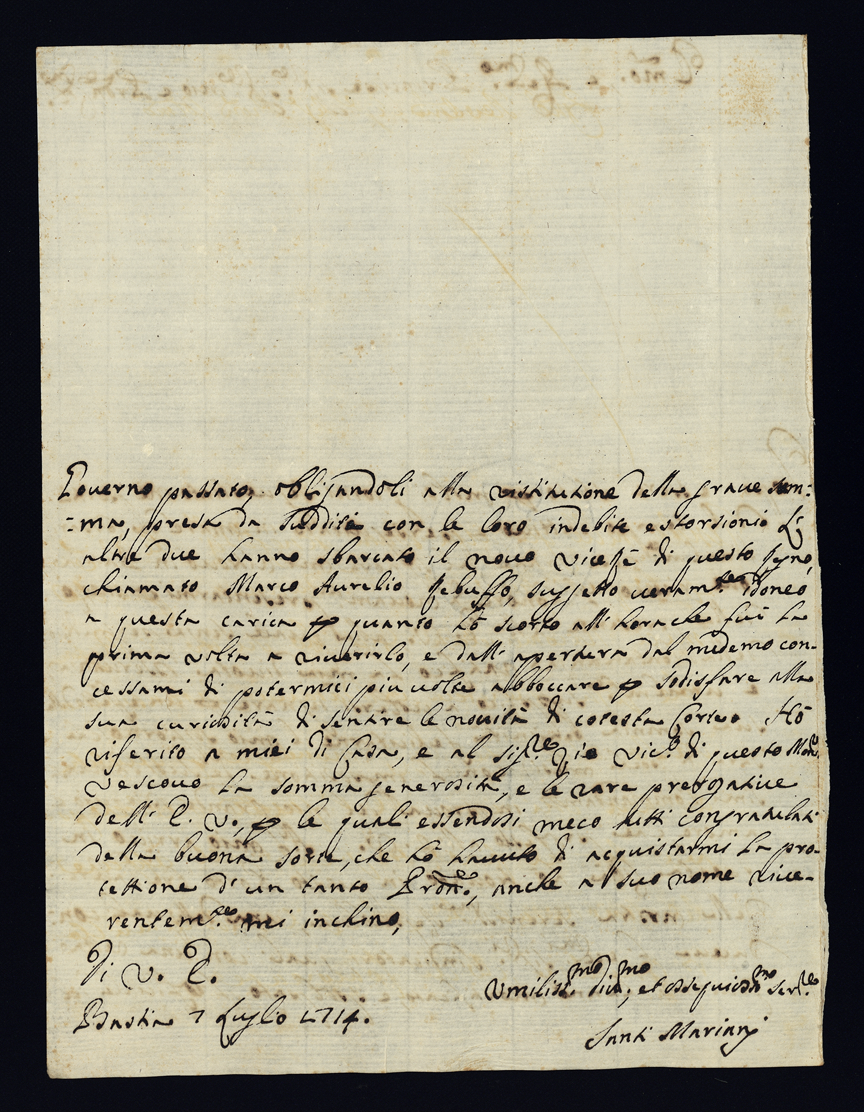 Governo passato, obligandoli alla restitutione della graue som:
:ma, presa da sudditi con le loro indebite estorsioni. Le
altre due hanno sbarcato il nouo di questo Regno,
chiamato Marco Aurelio Rebuffo, suggetto ueram.te idoneo
a questa carica p quanto hò scorto all' hora che fui la
prima volta a riuerirlo, e dall' apertura dal medemo con-
cessami di potermici piu uolte abboccare p sodisfare alla
sua curiosità di sentire le nouità di cotesta Corte. Hò
riferito a miei di Casa, e al sig.re Zio Vic.o di questo Mon.r
Vescouo la somma generosità, e le rare prerogatiue
dell' E. V., p le quali essendosi meco tutti congratulati
della buona sorte, che hò hauuto di acquistarmi la pro-
tettione d' un tanto Prone, anche a suo nome riue-
rentem.te mi inchino,
Di V. E.
Bastia 7 Luglio 1714.
Vmiliss.mo Diu.mo, et ossequiosiss.mo ser.re
Santi Mariani